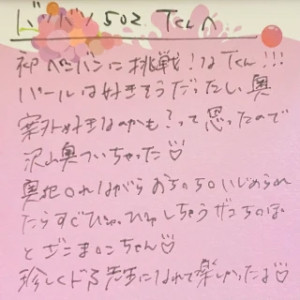 ドツボツ502 Tくんへ
初ペニバンに挑戦!なTくん!!!
パールは好きそうだったし、奥
案外好きなのかも?って思ったので
沢山奥ついちゃった♡
奥犯されながらおちんちんいじめられ
たらすぐぴゅっぴゅしちゃうザコちんぽ
とざこまんこちゃん♡
珍しくドS先生になれて楽しかったよ♡